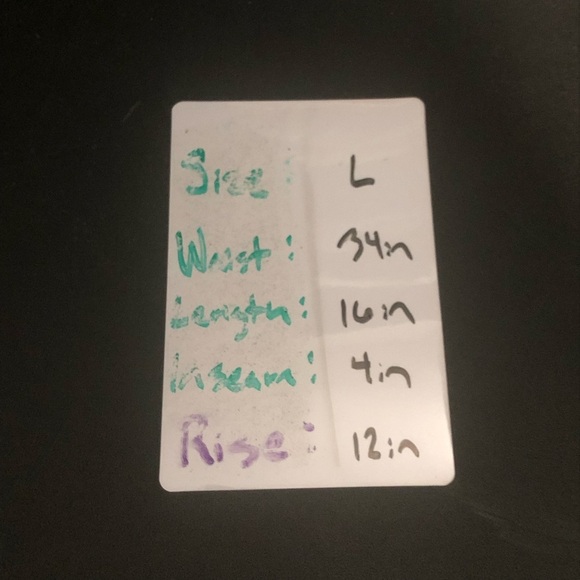 Size: L
Waist: 34in
Length: 16in
Inseam: 4in
Rise: 12in